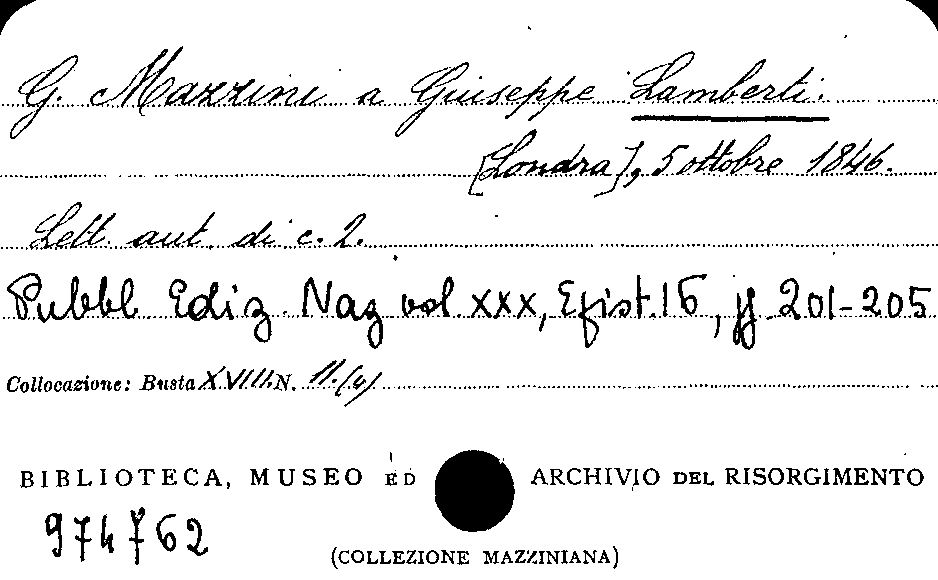 G. Mazzini a Giuseppe Lamberti.
[Londra], 5 ottobre 1846.
Lett. aut. di c. 2.
Pubbl. Ediz. Naz vol. XXX, Epist. 16, pp. 201-205
Collocazione: Busta XVIII. N. 11.(4)
BIBLIOTECA, MUSEO ED ARCHIVIO DEL RISORGIMENTO
974762
(COLLEZIONE MAZZINIANA)